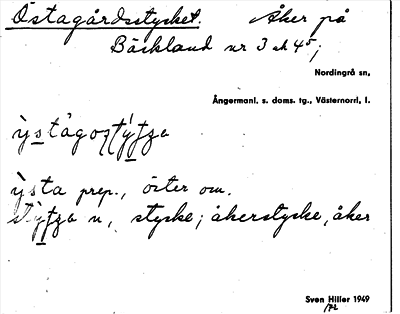 Östagårdsstycket. Åker på
Bäckland nr 3 och 45;
Nordingrå sn,
Ångermanl. s. doms. tg., Västernorrl. l.
ỳsta prep., öster om.
n, stycke; åkerstycke, åker
Sven Hiller 1949